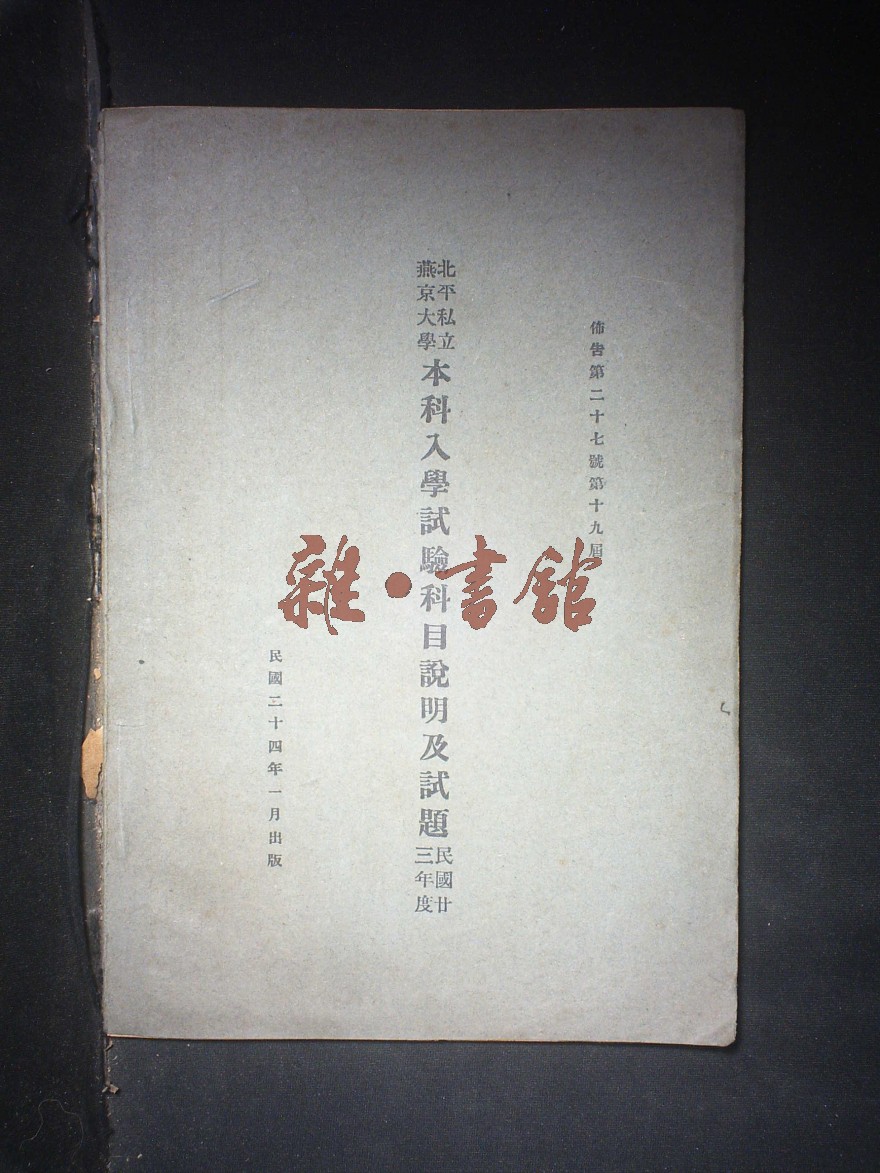 佈告第二十七號第十九屆
北平私立
燕京大學
本科入學試驗科目說明及試題
民國廿
三年度
民國二十四年一月出版
雜·書館